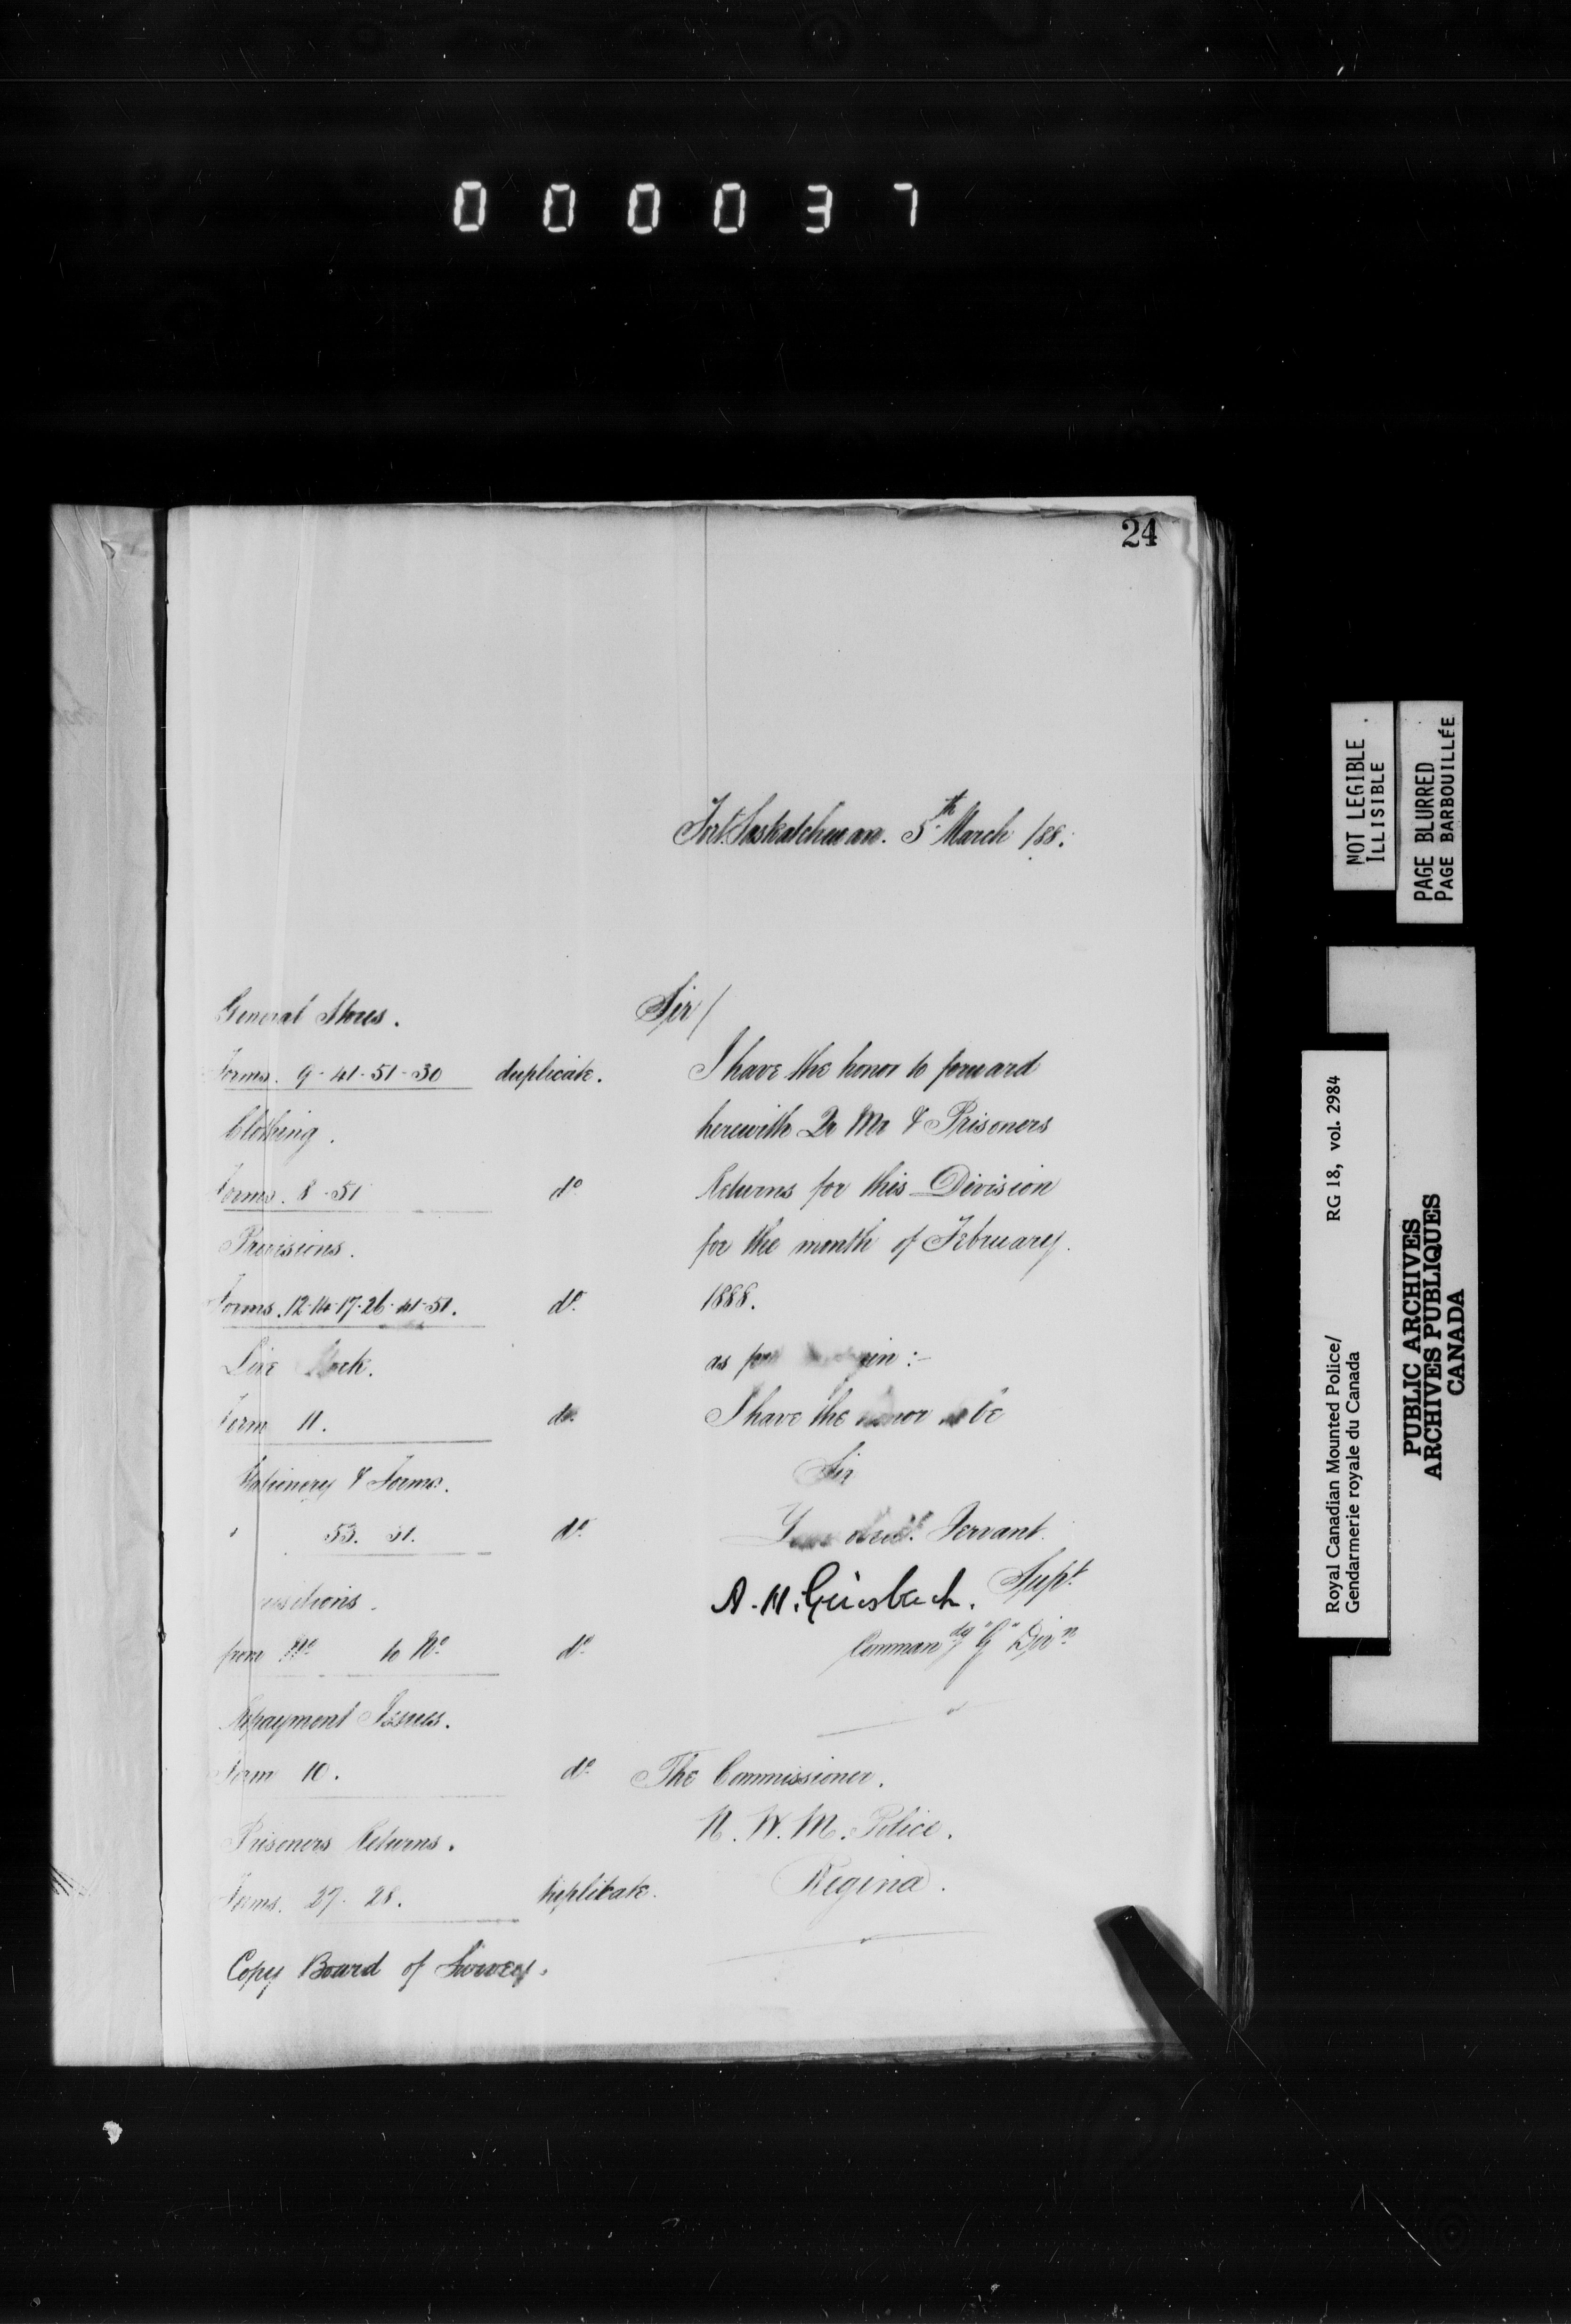 0 0 0 0 3 7
24
Fort Saskatchewan. 5th March /88.
General Stores.
Forms. 9-41-51-30 duplicate.
Clothing.
Forms. 8-51 do
Provisions.
Forms. 12-14-17-26-41-51. do
Live Stock.
Form 11. do
Stationery & Forms.
53. 51. do
isitions.
from No to No do
Repayment Issues.
Form 10. do
Prisoners Returns.
Forms. 27-28. triplicate.
Copy Board of Survey.
Sir/
I have the honor to forward
herewith Qr Mr & Prisoners
Returns for this Division
for the month of February
1888.
as per margin:-
I have the honor to be
Sir
Your obedt. Servant.
A. H. Griesbach. Supt
Commandg "G" Divn
The Commissioner.
N. W. M. Police.
Regina.
NOT LEGIBLE
ILLISIBLE
PAGE BLURRED
PAGE BARBOUILLÉE
Royal Canadian Mounted Police/ RG 18, vol. 2984
Gendarmerie royale du Canada
PUBLIC ARCHIVES
ARCHIVES PUBLIQUES
CANADA